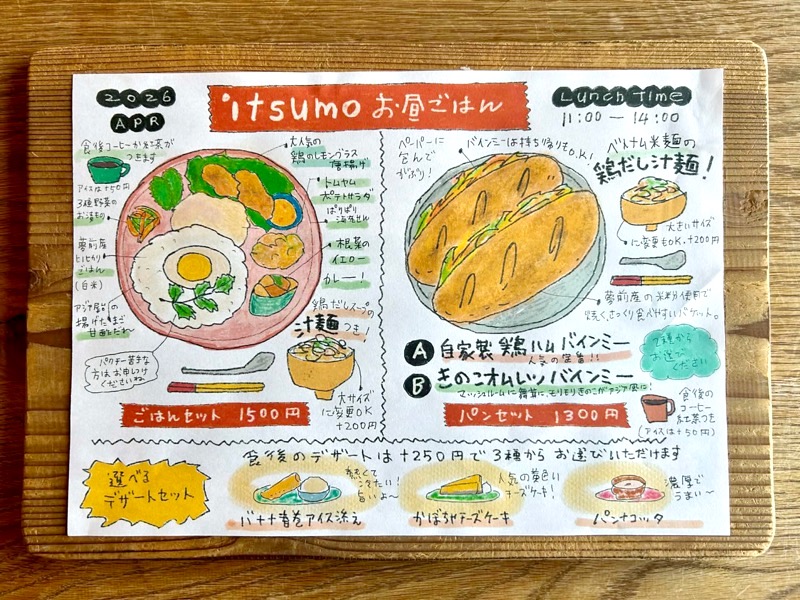 2026
APR
itsumo お昼ごはん
Lunch time
11:00 ― 14:00
食後コーヒーか紅茶が
つきます
アイスは+50円
3種野菜の
お漬もの
夢前産
ヒノヒカリ
ごはん
(白米)
アジア風の
揚げたまご
甘酢だれ〜
パクチー苦手な
方はお申しけ
くださいね
大人気の
鶏のレモングラス
唐揚げ
トムヤム
ポテトサラダ
ぱりぱり
海老せん
根菜の
イエロー
カレー!
鶏だしスープの
汁麺つき!
大サイズ
に変更OK
+200円
ごはんセット 1500円
ペーパーに
包んで
がぶり!
バインミーは持ち帰りもO.K!
ベトナム米麺の
鶏だし汁麺!
大きいサイズ
に変更もOK +200円
夢前産の米粉使用で
軽く、さっくり食べやすいバケット。
A 自家製 鶏ハムバインミー
人気の定番!!
B きのこオムレツバインミー
マッシュルームに舞茸に、モリモリきのこがアジア風に!
2種から
お選び
ください
パンセット 1300円
食後の
コーヒー
紅茶つき
(アイスは+50円)
選べる
デザートセット
食後のデザートは+250円で3種からお選びいただけます
熱くて
冷たい!
旨いよ〜
バナナ春巻アイス添え
人気の黄色い
チーズケーキ!
かぼちゃチーズケーキ
濃厚で
うまい〜
パンナコッタ